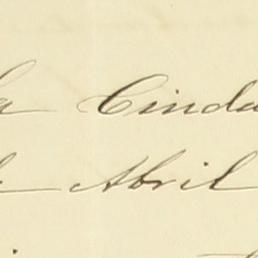 la Ciuda
de Abril